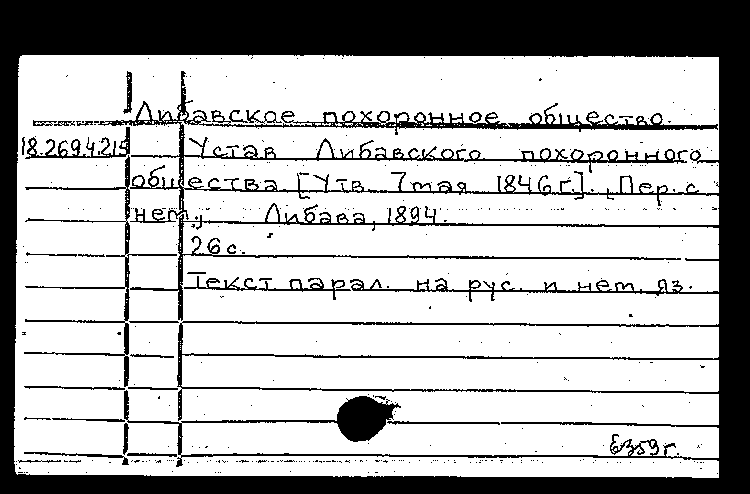 Либавское похоронное общество.
18.269.4.215 Устав Либавского похоронного
общества [Утв. 7 мая 1846 г.]. Пер. с
нем. Либава, 1894.
26 с.
Текст парал. на рус. и нем. яз.
6359г.